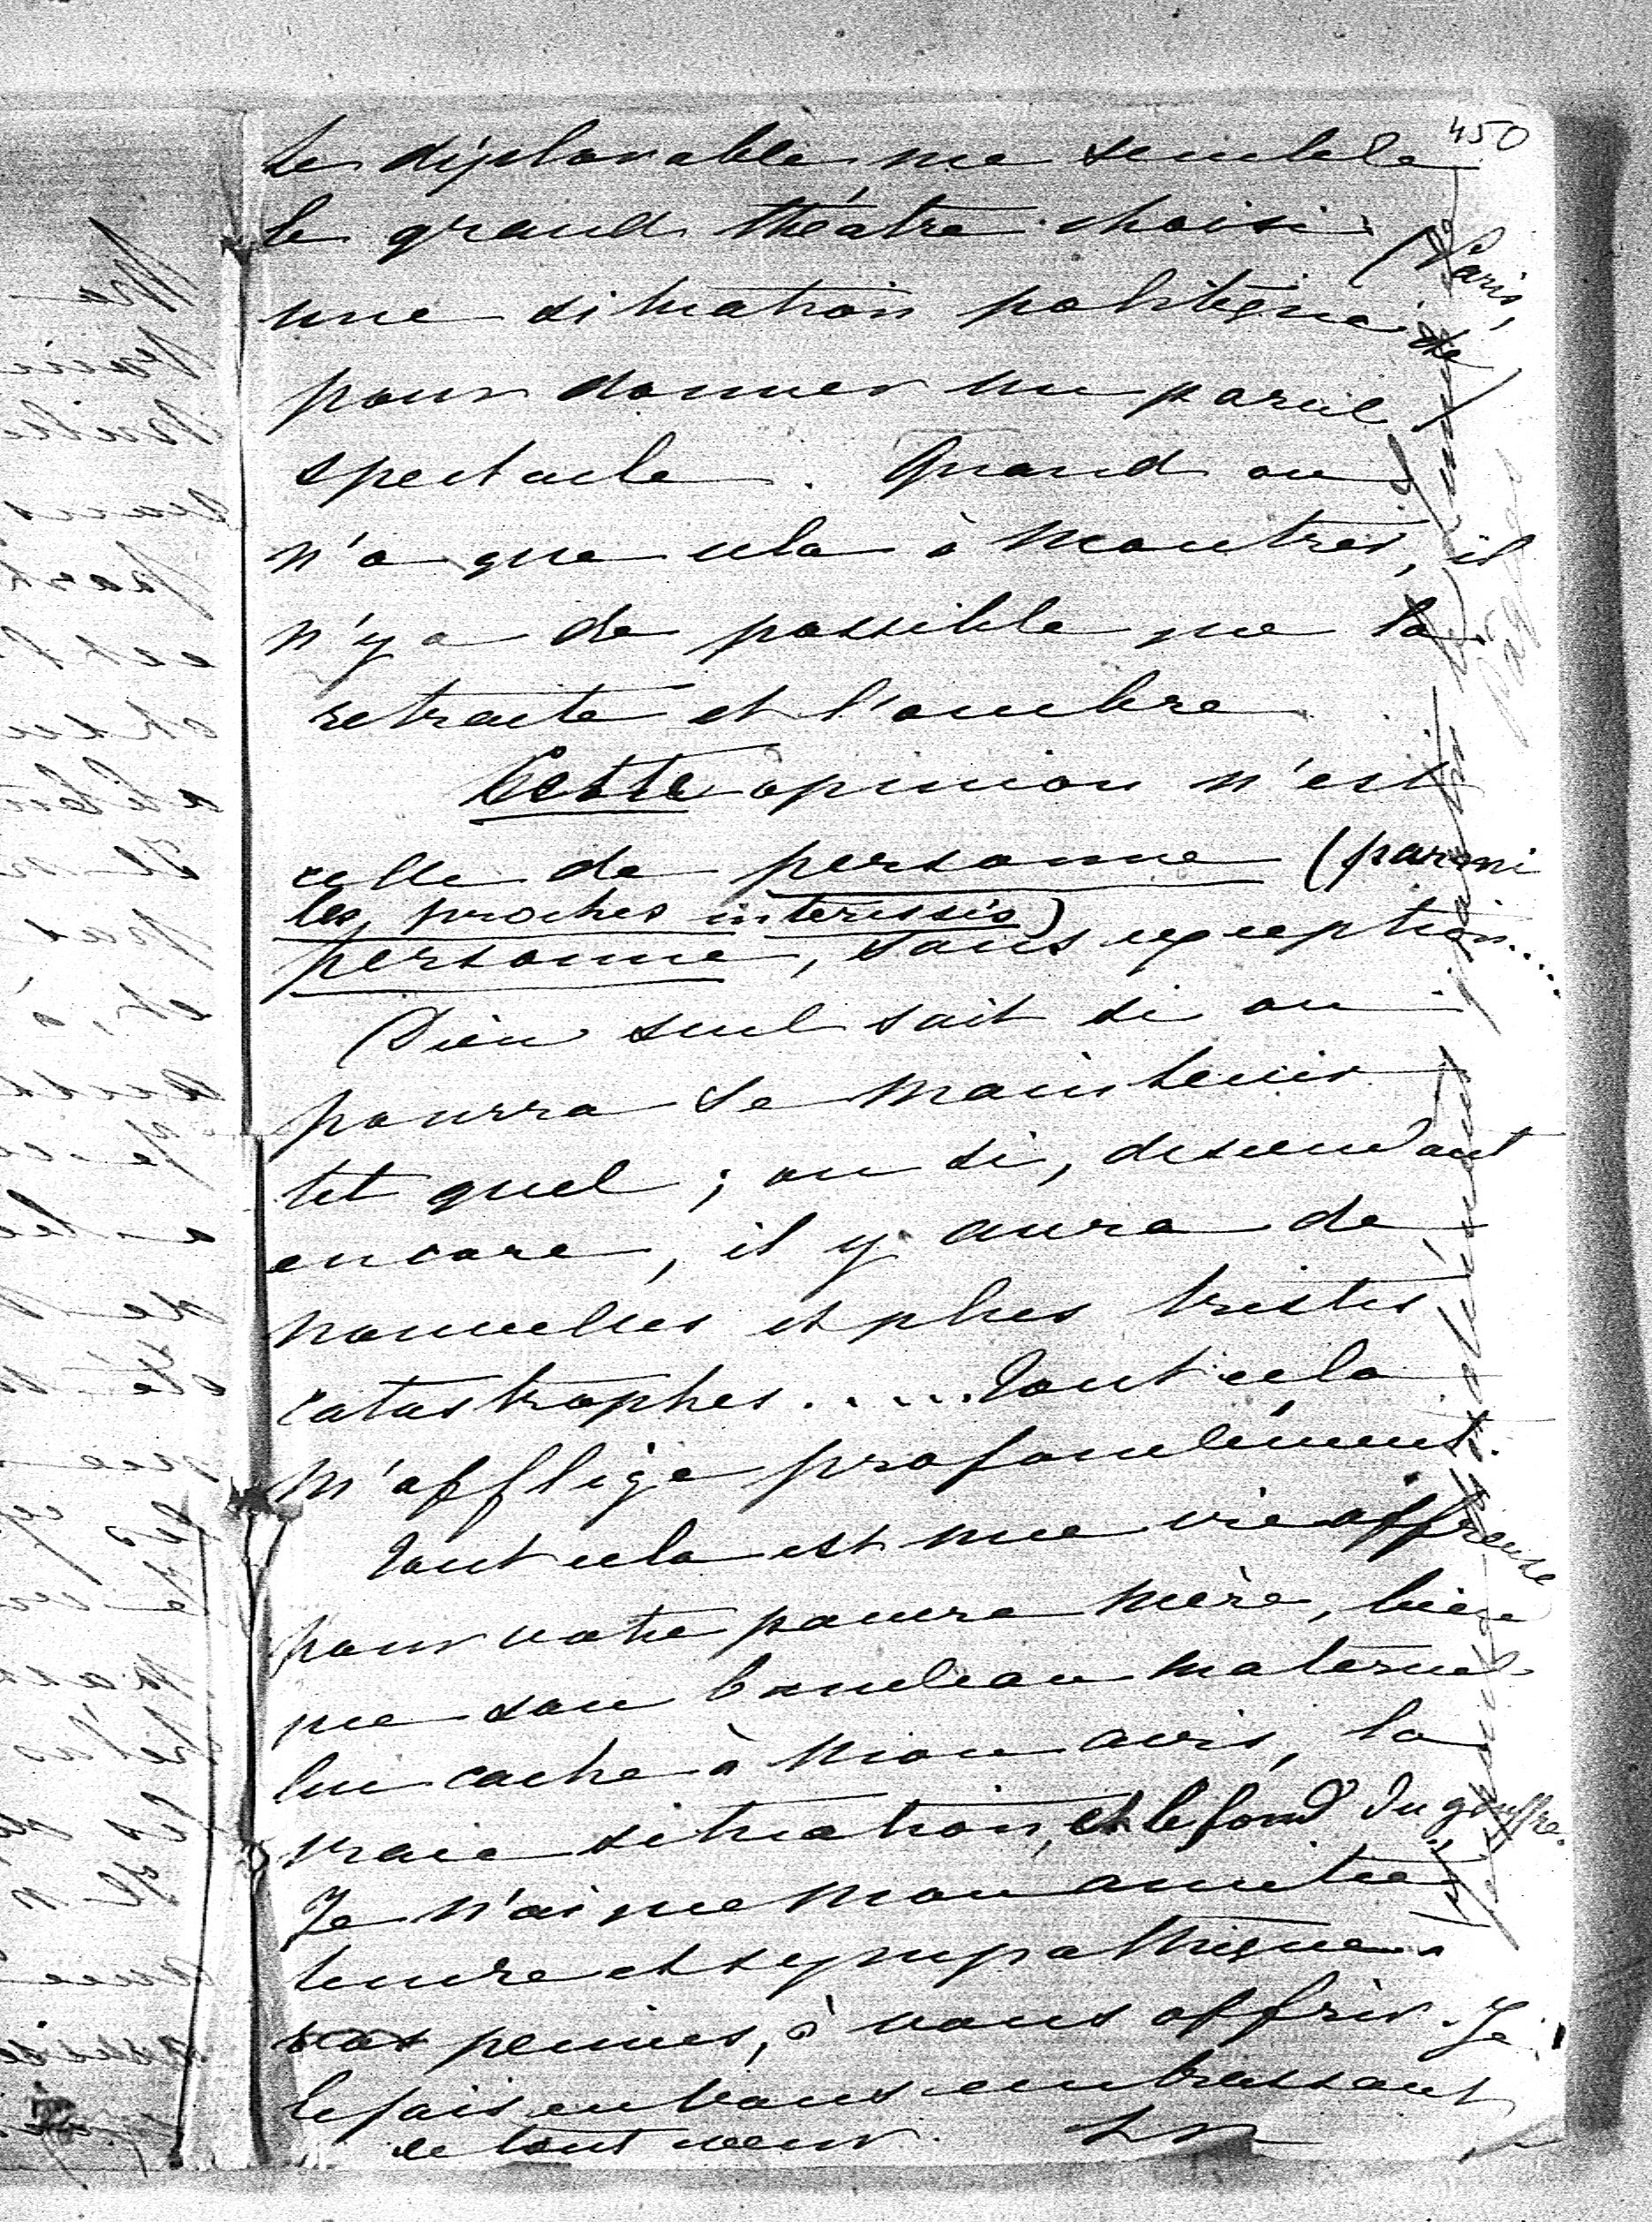 450
de déplorable me semble
le grand théâtre choisi (Paris,
une situation politique de
pour donner un pareil)
spectacle. Quand on
n'a que cela à montrer, il
n'y a de possible que la
retraite et l'ombre.
Cette opinion n'est
celle de personne (parmi
les proches intéressés)
personne, sans exception....
Dieu seul sait si on
pourra se maintenir
tel quel ; ou si, descendant
encore, il y aura de
nouvelles et plus tristes
catastrophes..... Tout cela
m'afflige profondément.
Tout cela est une vie affreuse
pour votre pauvre mère, bien
que son bandeau maternel
lui cache à mon avis, la
vraie situation, et le fond du gouffre.
Je n'ai que mon amitié
tendre et sympathique
vos peines, à vous offrir. Je
le fais en vous embrassant
de tout coeur.